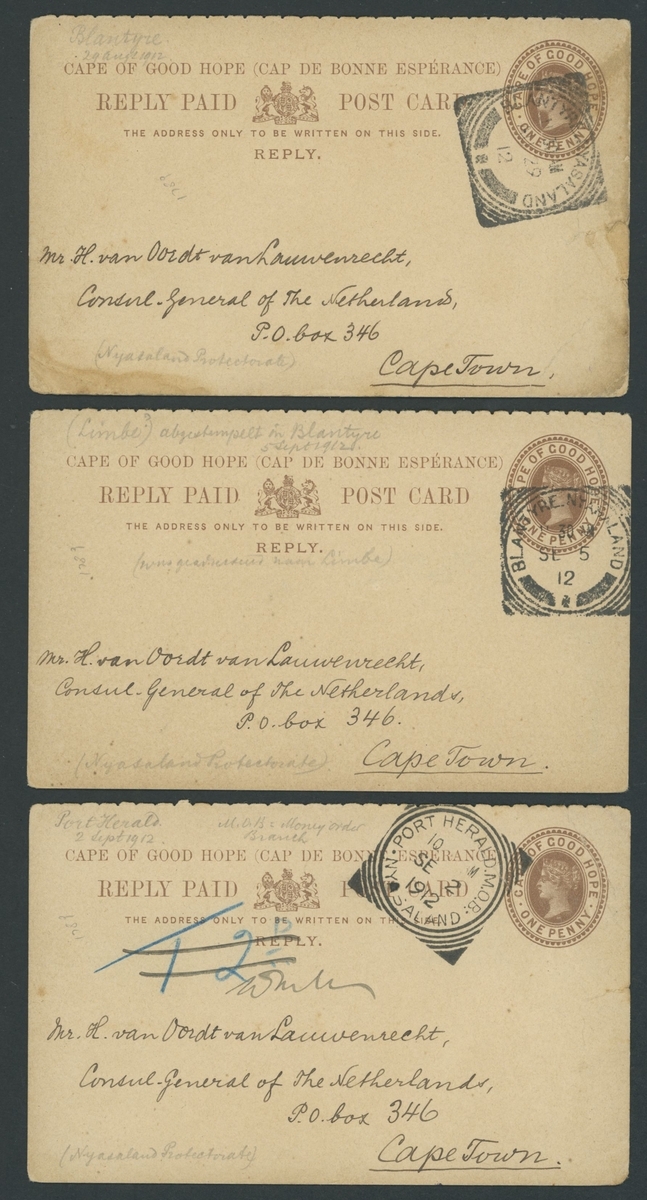 Blantyre
29 Aug 1912
CAPE OF GOOD HOPE (CAP DE BONNE ESPÉRANCE)
REPLY PAID POST CARD
THE ADDRESS ONLY TO BE WRITTEN ON THIS SIDE.
REPLY.
CAPE OF GOOD HOPE
ONE PENNY
BLANTYRE. NYASALAND
29
12
Mr. H. van Oordt van Lauwenrecht,
Consul-General of The Netherlands,
P.O. box 346
(Nyasaland Protectorate)
Cape Town.
(Limbe?) abgestempelt in Blantyre
5 Sept 1912.
CAPE OF GOOD HOPE (CAP DE BONNE ESPÉRANCE)
REPLY PAID POST CARD
THE ADDRESS ONLY TO BE WRITTEN ON THIS SIDE.
REPLY.
CAPE OF GOOD HOPE
ONE PENNY
BLANTYRE. NYASALAND
SE 5
12
(was geadresseerd naar Limbe)
Mr. H. van Oordt van Lauwenrecht,
Consul-General of The Netherlands,
P.O. box 346.
(Nyasaland Protectorate)
Cape Town.
Port Herald
2 Sept 1912
M.O.B = Money order
Branch
CAPE OF GOOD HOPE (CAP DE BONNE ESPÉRANCE)
REPLY PAID POST CARD
THE ADDRESS ONLY TO BE WRITTEN ON THIS SIDE.
REPLY.
PORT HERALD. M.O.B.
10 M
SE 2
1912
NYASALAND
CAPE OF GOOD HOPE
ONE PENNY
T 2D
Mr. H. van Oordt van Lauwenrecht,
Consul-General of The Netherlands,
P.O. box 346
(Nyasaland Protectorate)
Cape Town.